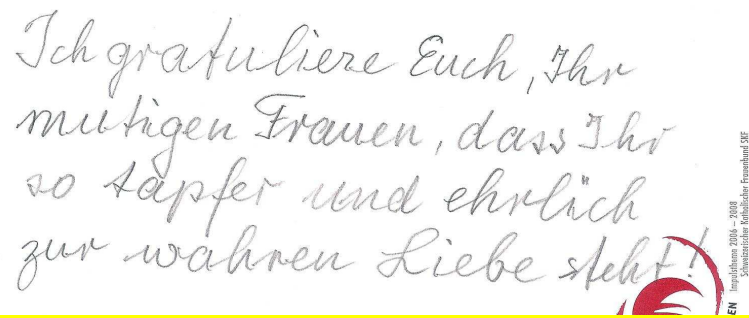 Ich gratuliere Euch, Ihr
mutigen Frauen, dass Ihr
so tapfer und ehrlich
zur wahren Liebe steht!
Impulsthema 2006 – 2008
Schweizerischer Katholischer Frauenbund SKF
EN